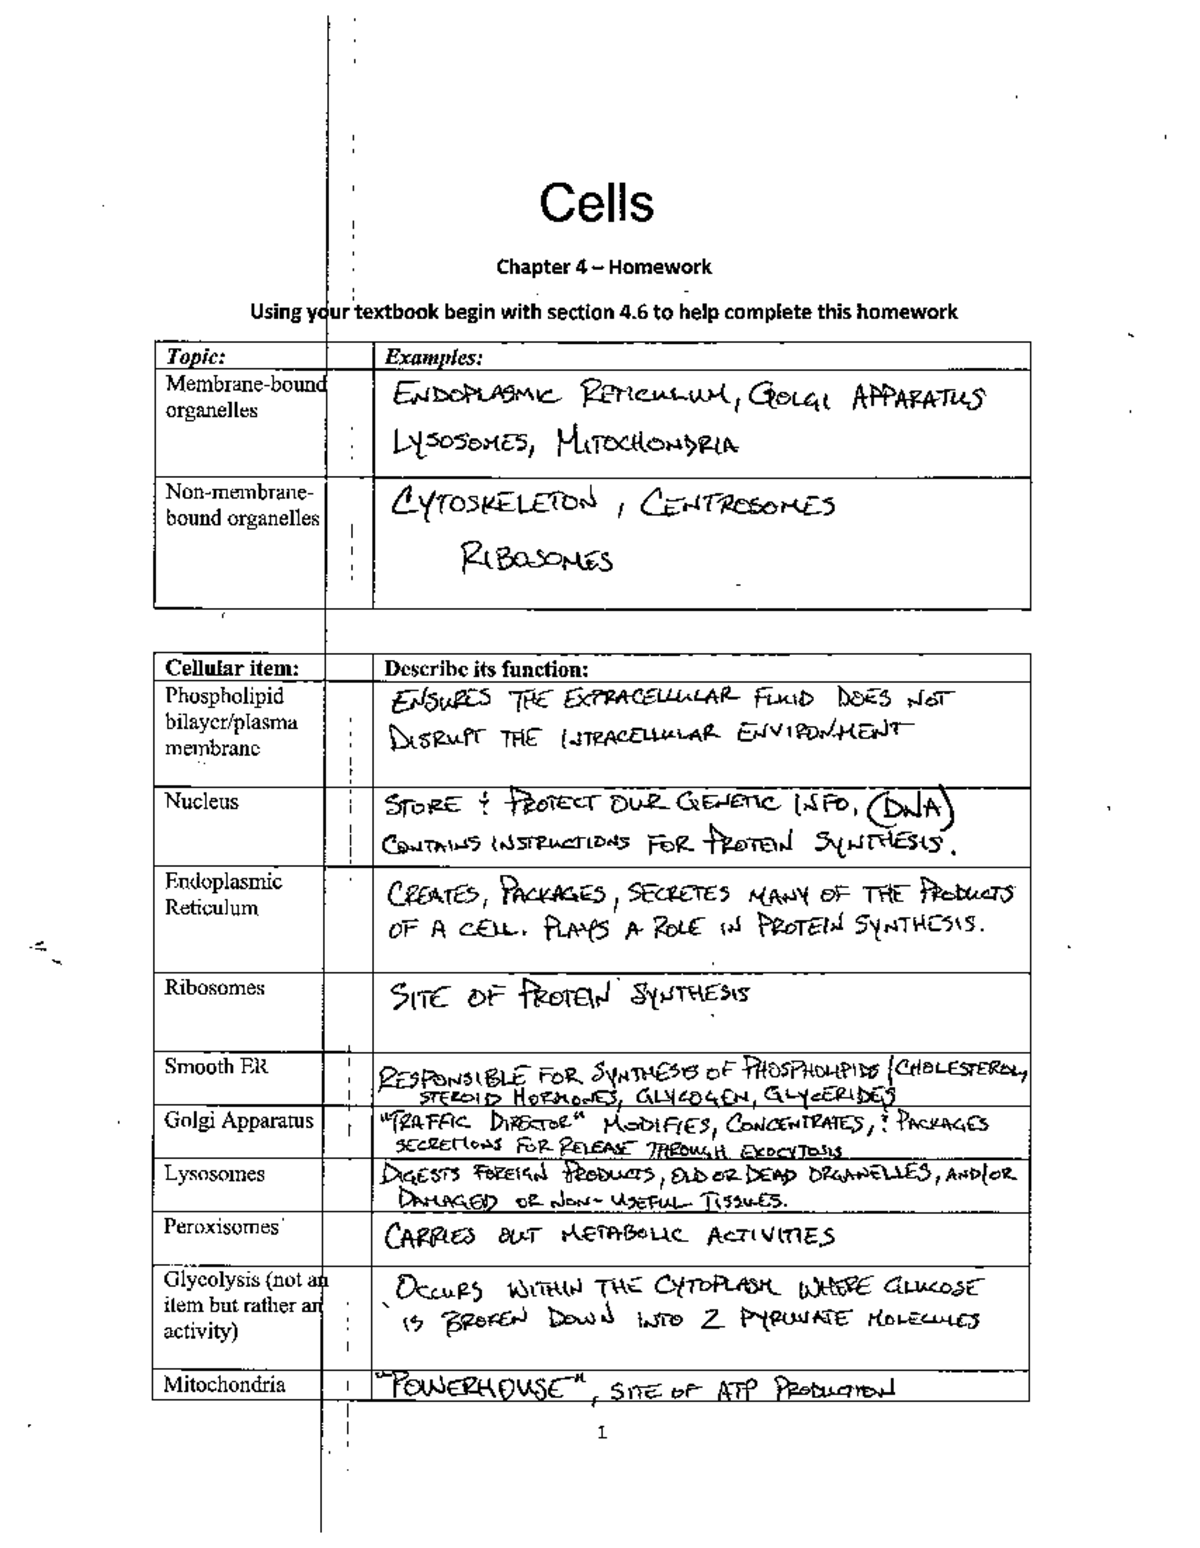 Cells
Chapter 4 – Homework
Using your textbook begin with section 4.6 to help complete this homework
Topic: Examples:
Membrane-bound organelles
ENDOPLASMIC RETICULUM, GOLGI APPARATUS
LYSOSOMES, MITOCHONDRIA
Non-membrane-
bound organelles
CYTOSKELETON, CENTROSOMES
RIBOSOMES
Cellular item: Describe its function:
Phospholipid
bilayer/plasma
membrane
ENSURES THE EXTRACELLULAR FLUID DOES NOT
DISRUPT THE INTRACELLULAR ENVIRONMENT
Nucleus
STORE & PROTECT OUR GENETIC INFO, (DNA)
CONTAINS INSTRUCTIONS FOR PROTEIN SYNTHESIS.
Endoplasmic
Reticulum
CREATES, PACKAGES, SECRETES MANY OF THE PRODUCTS
OF A CELL. PLAYS A ROLE IN PROTEIN SYNTHESIS.
Ribosomes
SITE OF PROTEIN SYNTHESIS
Smooth ER
RESPONSIBLE FOR SYNTHESIS OF PHOSPHOLIPIDS/CHOLESTEROL,
STEROID HORMONES, GLYCOGEN, GLYCERIDES
Golgi Apparatus
"TRAFFIC DIRECTOR" MODIFIES, CONCENTRATES, & PACKAGES
SECRETIONS FOR RELEASE THROUGH EXOCYTOSIS
Lysosomes
DIGESTS FOREIGN PRODUCTS, OLD OR DEAD ORGANELLES, AND/OR
DAMAGED OR NON-USEFUL TISSUES.
Peroxisomes
CARRIES OUT METABOLIC ACTIVITIES
Glycolysis (not an
item but rather an
activity)
OCCURS WITHIN THE CYTOPLASM WHERE GLUCOSE
IS BROKEN DOWN INTO 2 PYRUVATE MOLECULES
Mitochondria
"POWERHOUSE", SITE OF ATP PRODUCTION
1